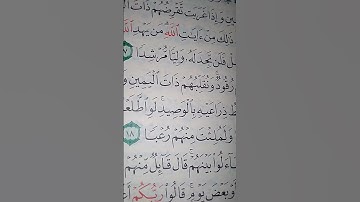 ـمِينِ وَإِذَا غَرَبَت تَّقْرِضُهُمْ ذَاتَ ا
ذَٰلِكَ مِنْ ءَايَٰتِ ٱللَّهِ مَن يَهْدِ ٱللَّهُ
ـلْ فَلَن تَجِدَ لَهُۥ وَلِيًّا مُّرْشِدًا ١٧
رُقُودٌ وَنُقَلِّبُهُمْ ذَاتَ ٱلْيَمِينِ وَ
ـطٌ ذِرَاعَيْهِ بِٱلْوَصِيدِ لَوِ ٱطَّلَعْـ
وَلَمُلِئْتَ مِنْهُمْ رُعْبًا ١٨
ـَٔلُوا۟ بَيْنَهُمْ قَالَ قَآئِلٌ مِّنْهُمْ
وْ بَعْضَ يَوْمٍ قَالُوا۟ رَبُّكُمْ أَ